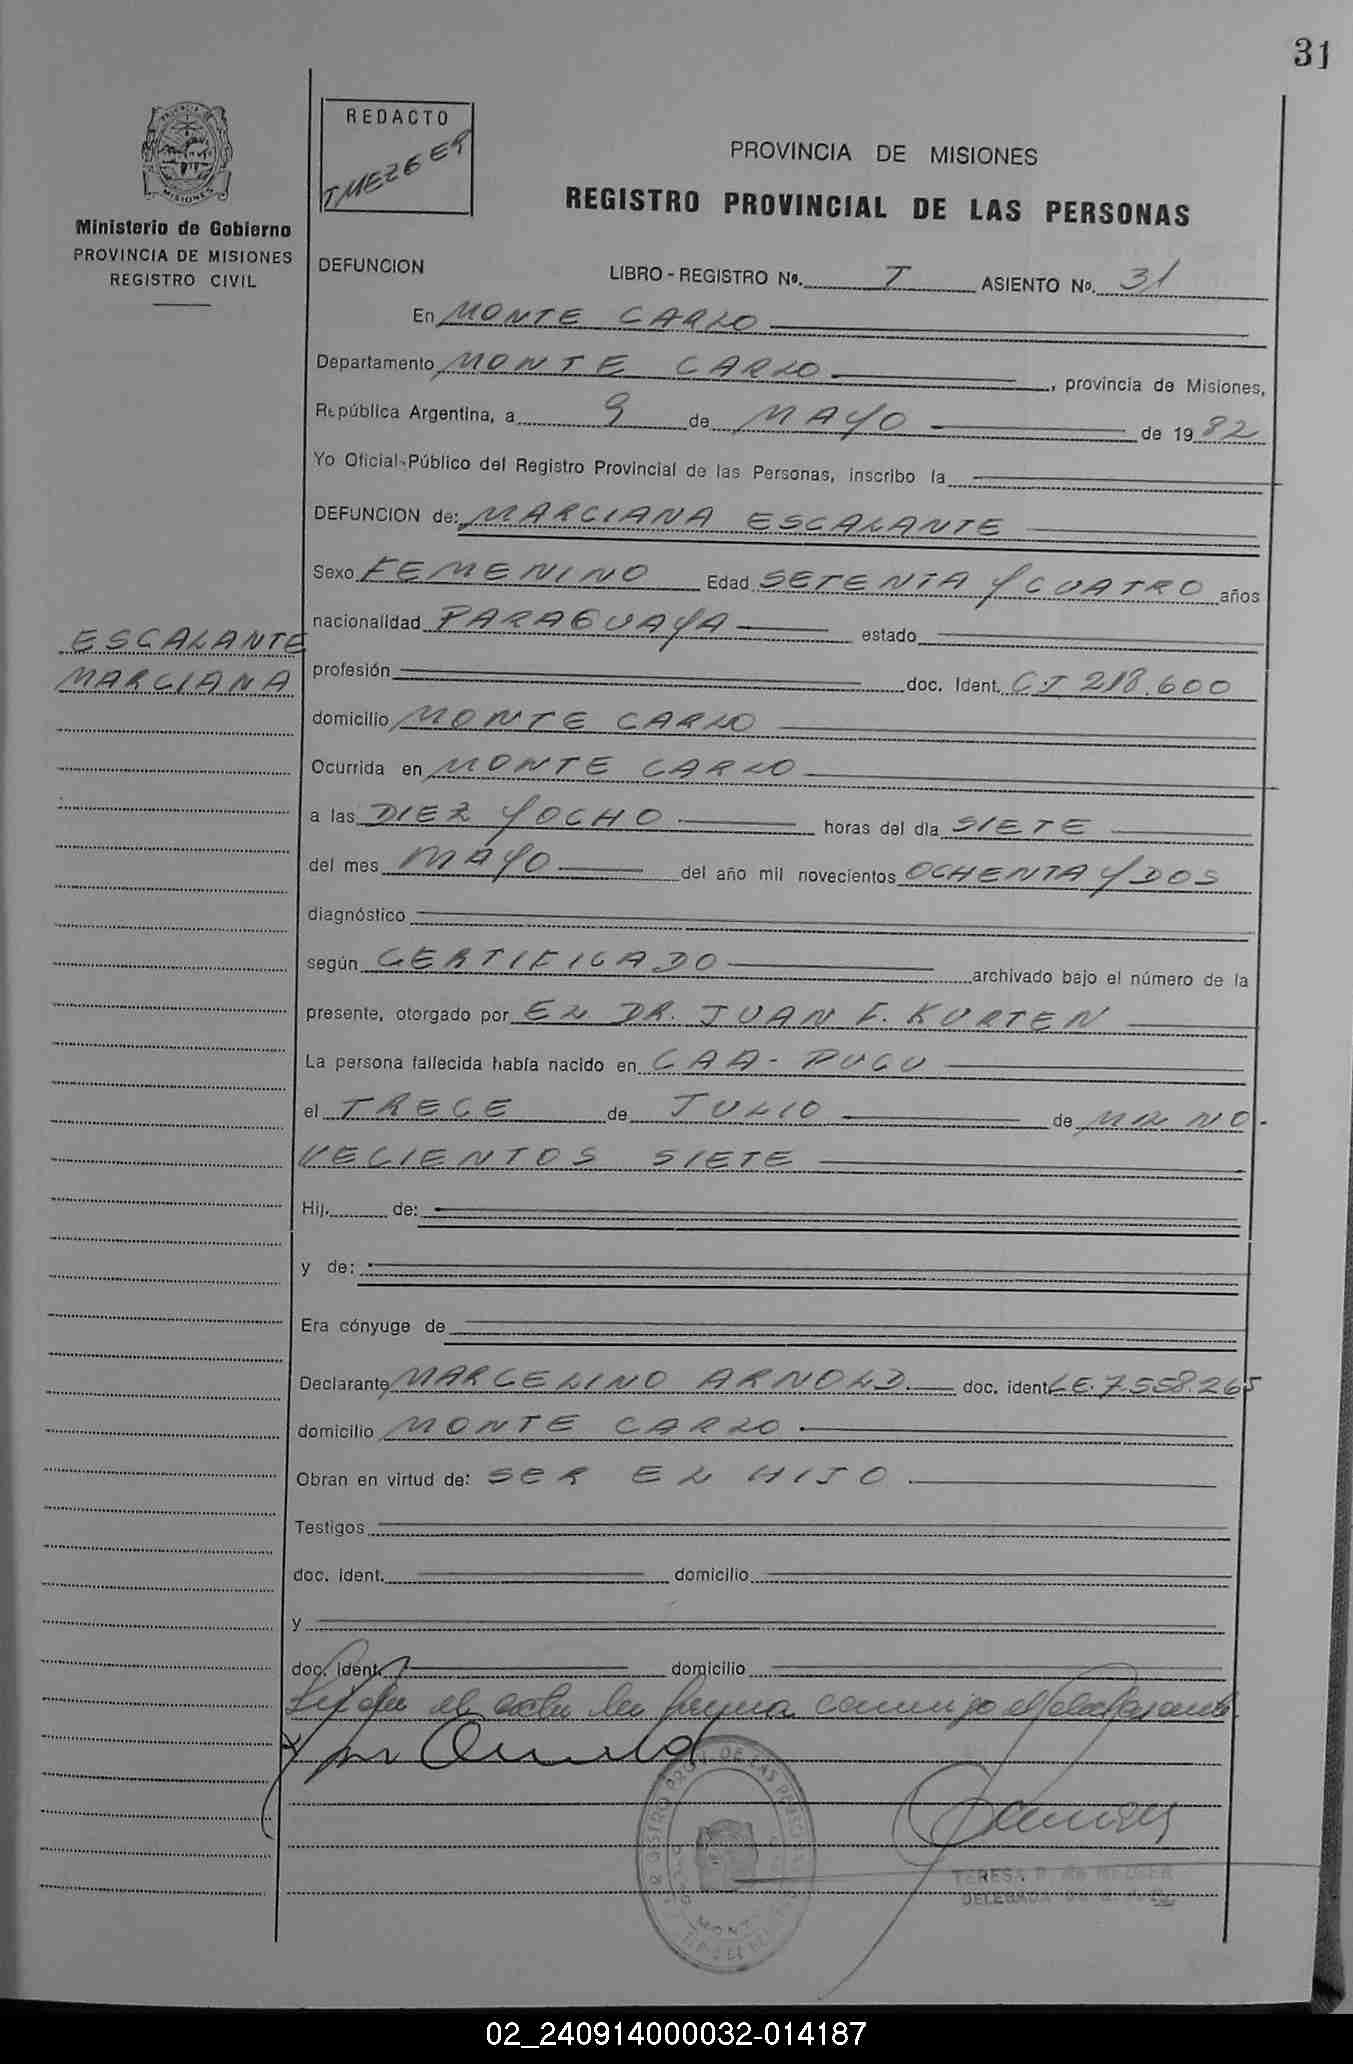 31
REDACTO
T MEZGER
PROVINCIA DE MISIONES
REGISTRO PROVINCIAL DE LAS PERSONAS
Ministerio de Gobierno
PROVINCIA DE MISIONES
REGISTRO CIVIL
DEFUNCION LIBRO - REGISTRO No. T ASIENTO No. 31
En MONTE CARLO
Departamento MONTE CARLO, provincia de Misiones,
República Argentina, a 9 de MAYO de 1982
Yo Oficial-Público del Registro Provincial de las Personas, inscribo la
DEFUNCION de: MARCIANA ESCALANTE
Sexo FEMENINO Edad SETENTA Y CUATRO años
nacionalidad PARAGUAYA estado
ESCALANTE
MARCIANA
profesión doc. Ident. CI 218.600
domicilio MONTE CARLO
Ocurrida en MONTE CARLO
a las DIEZ Y OCHO horas del día SIETE
del mes MAYO del año mil novecientos OCHENTA Y DOS
diagnóstico
según CERTIFICADO archivado bajo el número de la
presente, otorgado por EL DR. JUAN F. KURTEN
La persona fallecida había nacido en CAA-PUCU
el TRECE de JULIO de MIL NO-
VECIENTOS SIETE
Hij. de:
y de:
Era cónyuge de
Declarante MARCELINO ARNOLD. doc. ident. LE.7.558.265
domicilio MONTE CARLO
Obran en virtud de: SER EL HIJO
Testigos
doc. ident. domicilio
y
doc. ident. domicilio
Leída el acta la firma conmigo el declarante
TERESA R. de MEZGER
DELEGADA
02_240914000032-014187